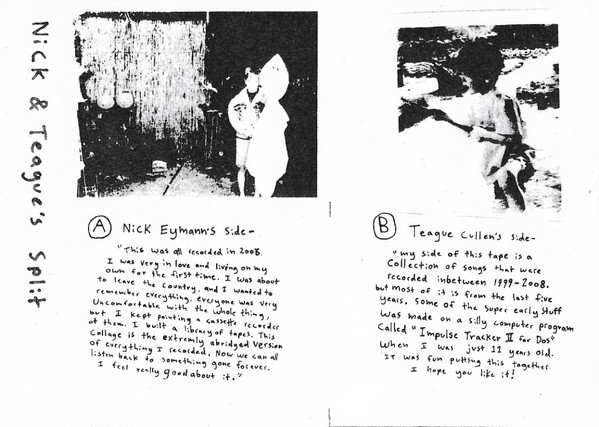 Nick & Teague's Split
A Nick Eymann's Side-
"This was all recorded in 2006.
I was very in love and living on my
own for the first time. I was about
to leave the country, and I wanted to
remember everything. everyone was very
Uncomfortable with the whole thing,
but I kept pointing a cassette recorder
at them. I built a library of tapes. This
Collage is the extremely abridged version
of everything I recorded. Now we can all
listen back to something gone forever.
I feel really good about it."
B Teague Cullen's side-
"my side of this tape is a
Collection of songs that were
recorded inbetween 1999-2008.
but most of it is from the last five
years. Some of the super early stuff
was made on a silly computer program
Called "Impulse Tracker II for Dos"
When I was just 11 years old.
It was fun putting this together.
I hope you like it!